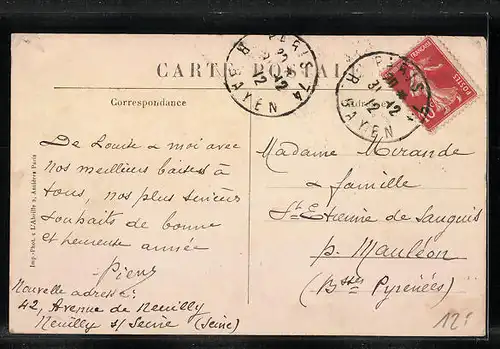 CARTE POSTALE
Correspondance
Adresse
De Louise & moi avec
nos meilleurs baisers à
tous, nos plus sincères
souhaits de bonne
et heureuse année
Pierre
Nouvelle adresse :
42, Avenue de Neuilly
Neuilly s/ Seine (Seine)
Madame Mirande
& famille
St Etienne de Sauguis
p. Mauléon
(Bsses Pyrénées)
PARIS 74
31 * 12
12
R. BAYEN
PARIS 74
31 * 12
12
R. BAYEN
POSTES
Imp.-Phot. « L'Abeille », Asnières Paris